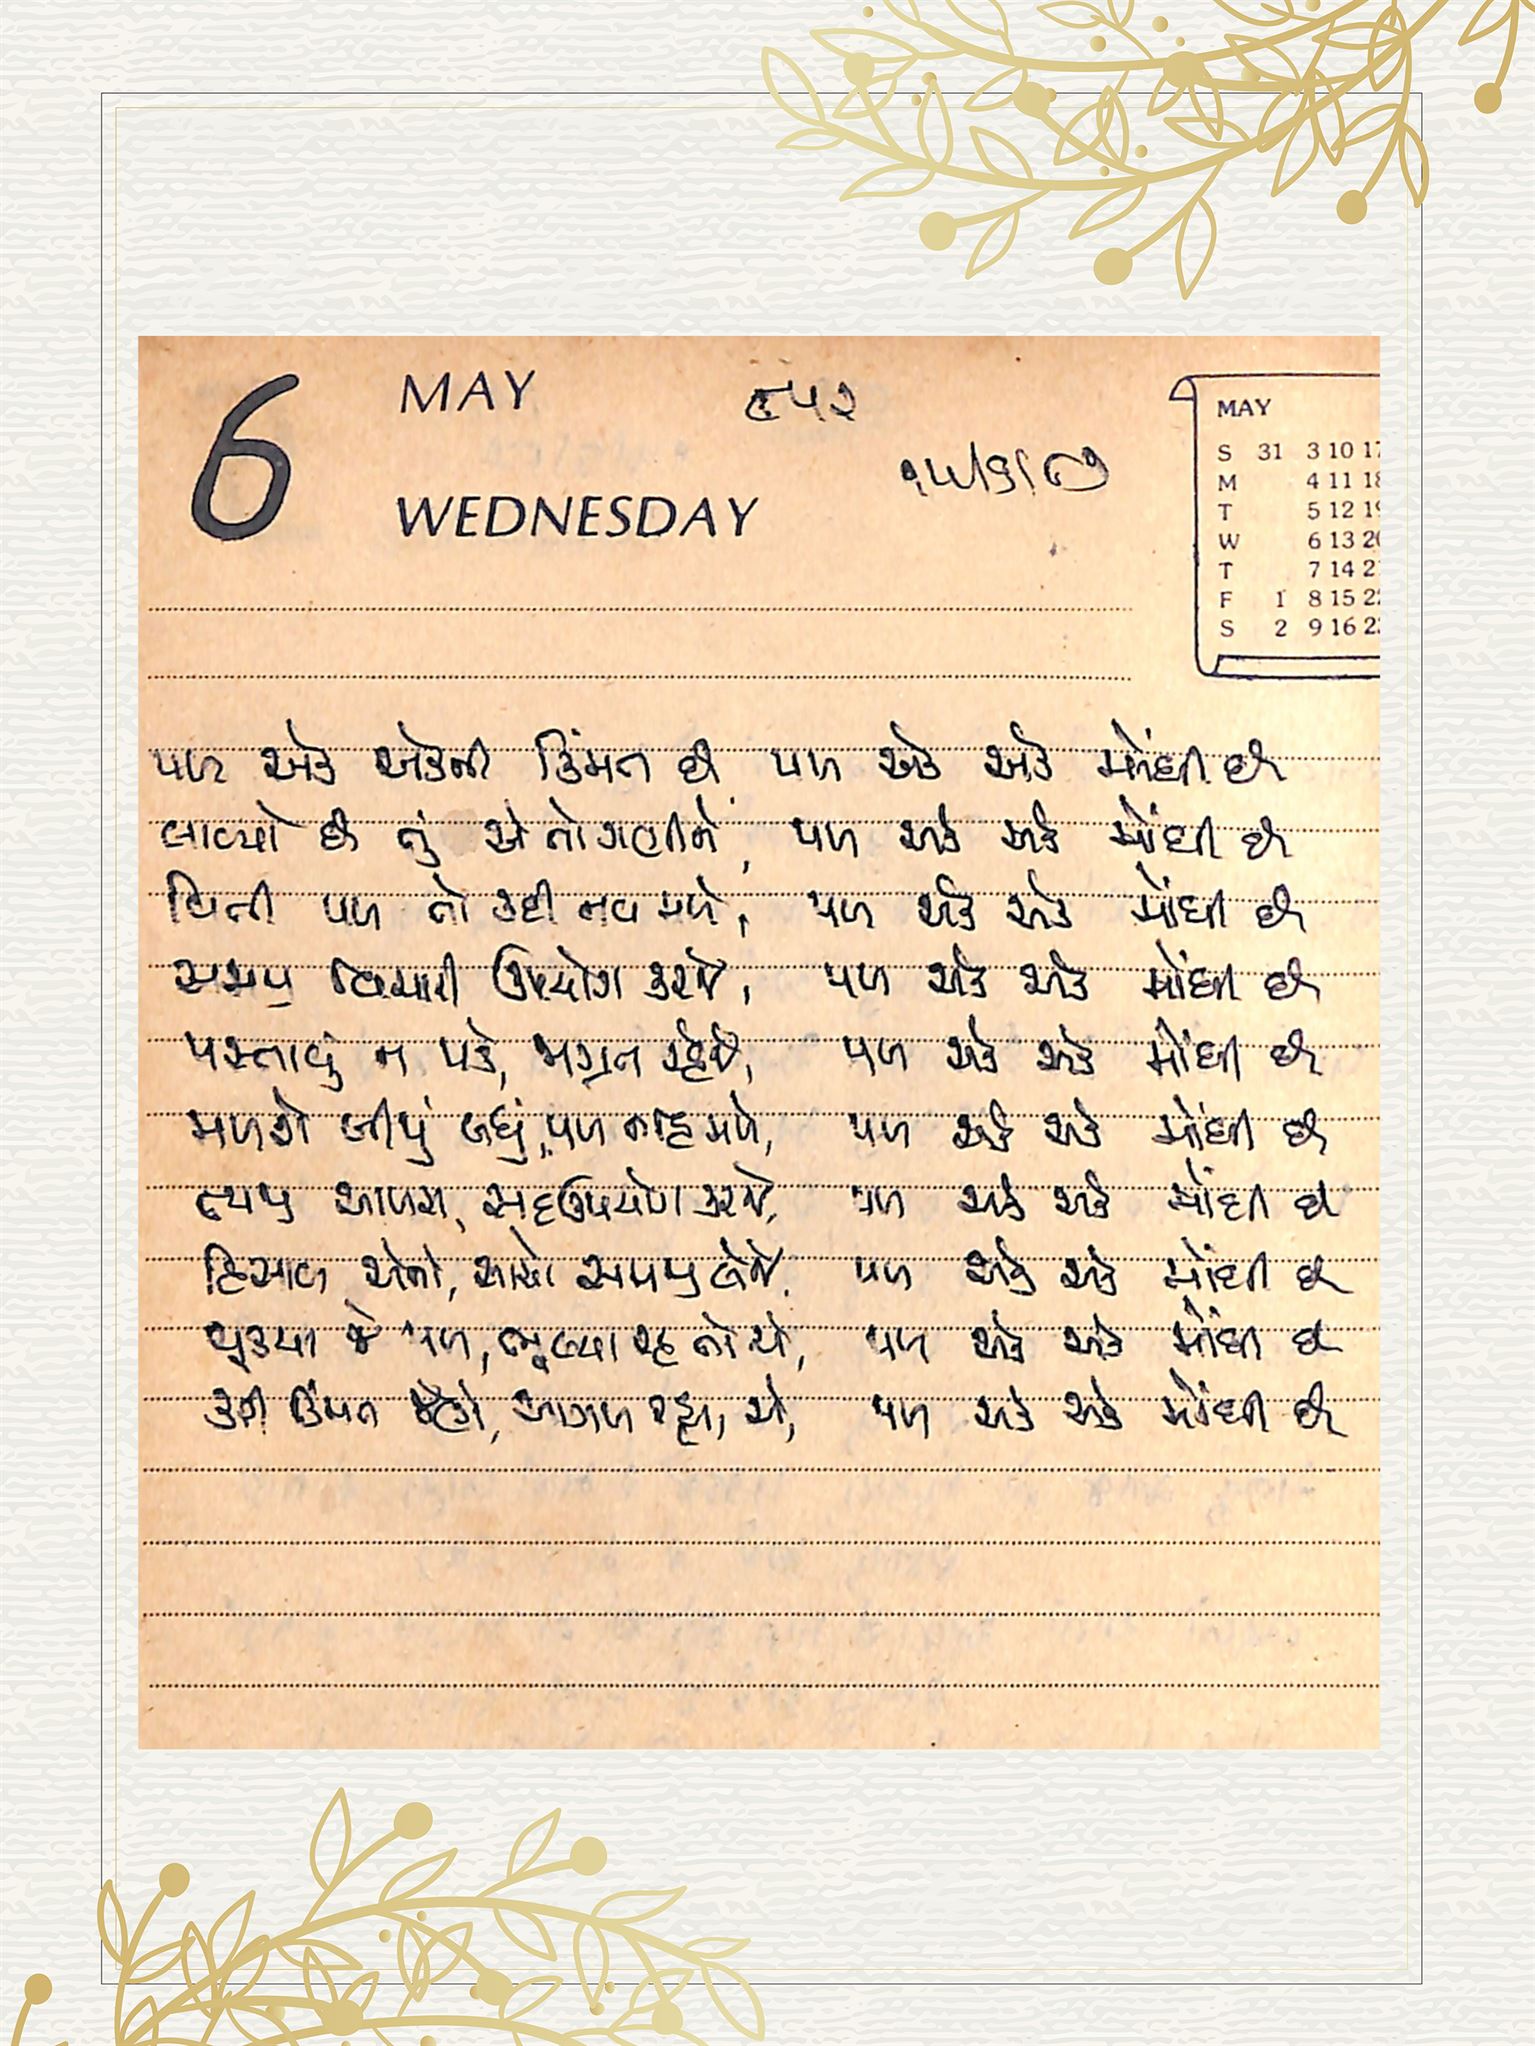 6 MAY ૯૫૨
WEDNESDAY
MAY
S 31 3 10 17
M 4 11 18
T 5 12 19
W 6 13 20
T 7 14 21
F 1 8 15 22
S 2 9 16 23
પળ એક એકની કિંમત છે પળ એક એક મોંઘી છે
લાવ્યો છે તું એ તો ગણીને, પળ એક એક મોંઘી છે
વિતી પળ તો કદી નવ મળે, પળ એક એક મોંઘી છે
સમય વિચારી ઉપયોગ કરજે, પળ એક એક મોંઘી છે
પસ્તાવું ન પડે, જાગ્રત રહેજે, પળ એક એક મોંઘી છે
મળશે બીજું બધું, પળ નહિ મળે, પળ એક એક મોંઘી છે
ત્યજી આળસ, સદઉપયોગ કરજે, પળ એક એક મોંઘી છે
હિસાબ એનો, સાચો સમજી લેજે, પળ એક એક મોંઘી છે
ચૂક્યા જે પળ, ભૂલ્યા એ તો, પળ એક એક મોંઘી છે
કરી કિંમત જેણે, આગળ રહ્યા એ, પળ એક એક મોંઘી છે